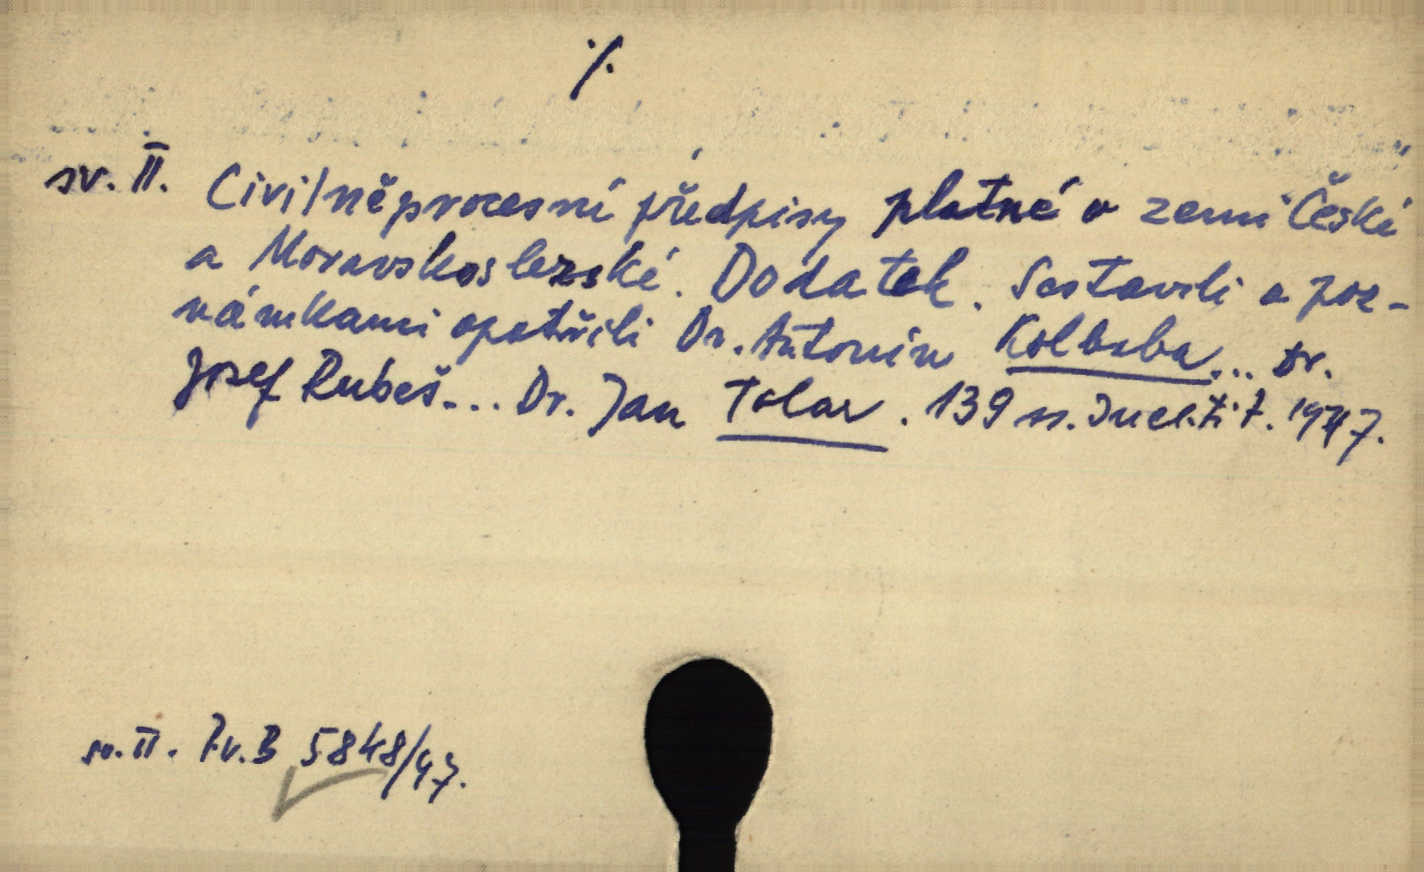 ./.
sv. II. Civilněprocesní předpisy platné v zemi České
a Moravskoslezské. Dodatek. Sestavili a poz-
námkami opatřili Dr. Antonín Kolbaba... Dr.
Josef Rubeš... Dr. Jan Tolar. 139 ss. 1947.
sv. II. Př. B 5848/47.